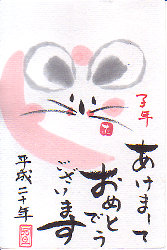 子年
あけまして
おめでとう
ございます
平成二十年
元旦